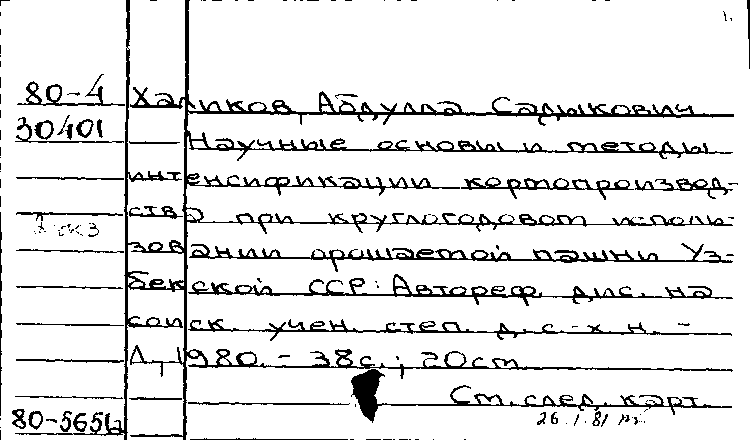 1.
80-4 Халиков, Абдулла Садыкович
30401 Научные основы и методы
интенсификации кормопроизвод-
ства при круглогодовом исполь-
2 экз
зовании орошаемой пашни Уз-
бекской ССР: Автореф. дис. на
соиск. учен. степ. д. с.-х. н. -
Л., 1980. - 38с.; 20см
См. след. карт.
80-5651 26.1.81